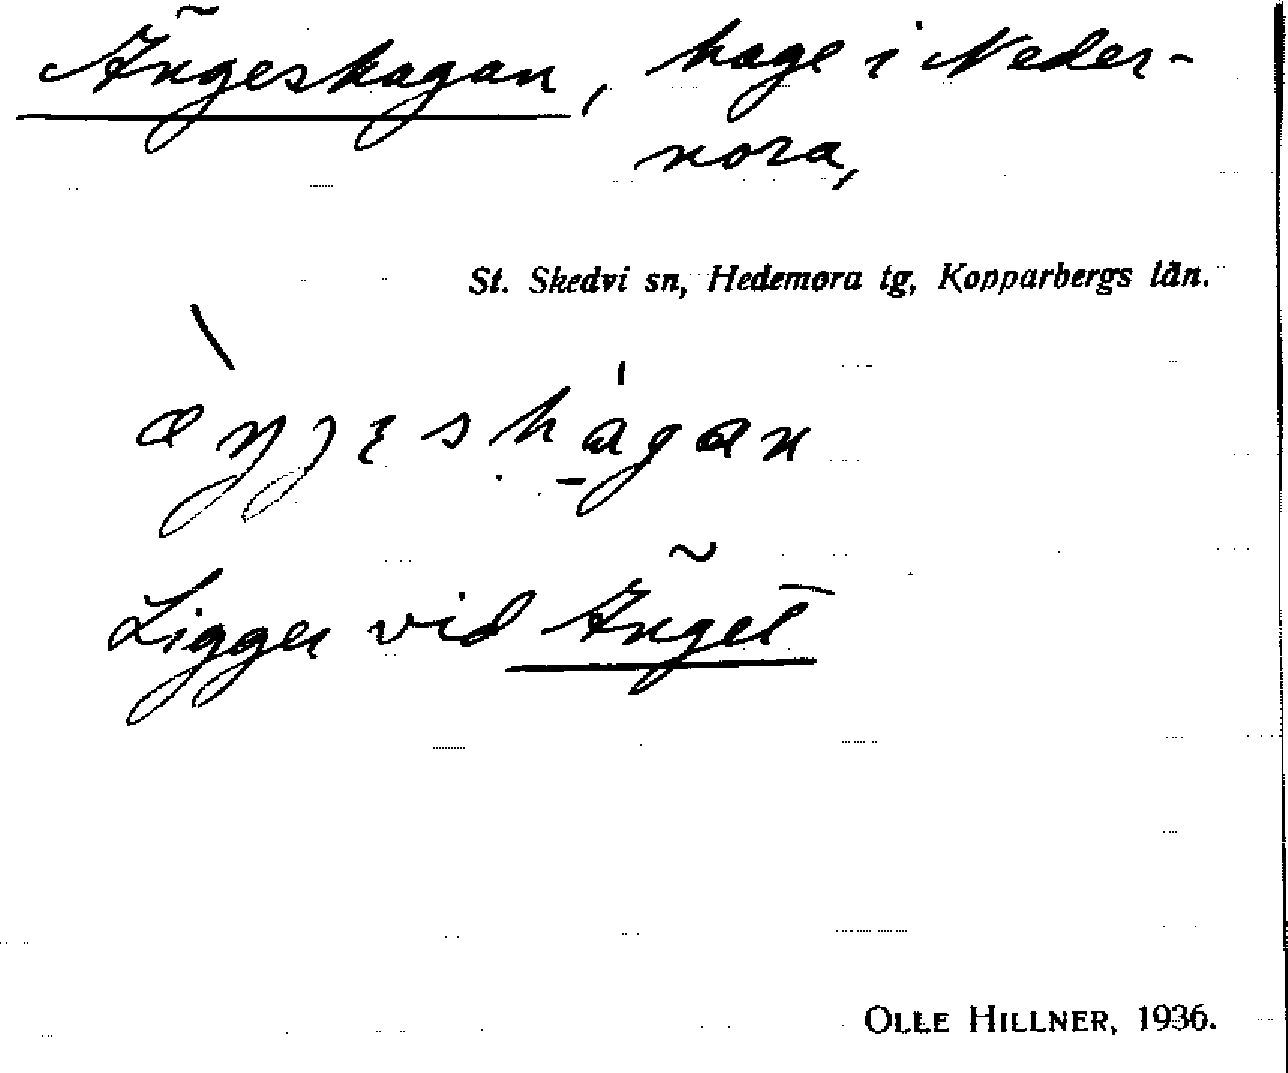 Ängeshagan, hage i Neder-
nora,
St. Skedvi sn, Hedemora tg, Kopparbergs län.
Ligger vid Änget
OLLE HILLNER, 1936.